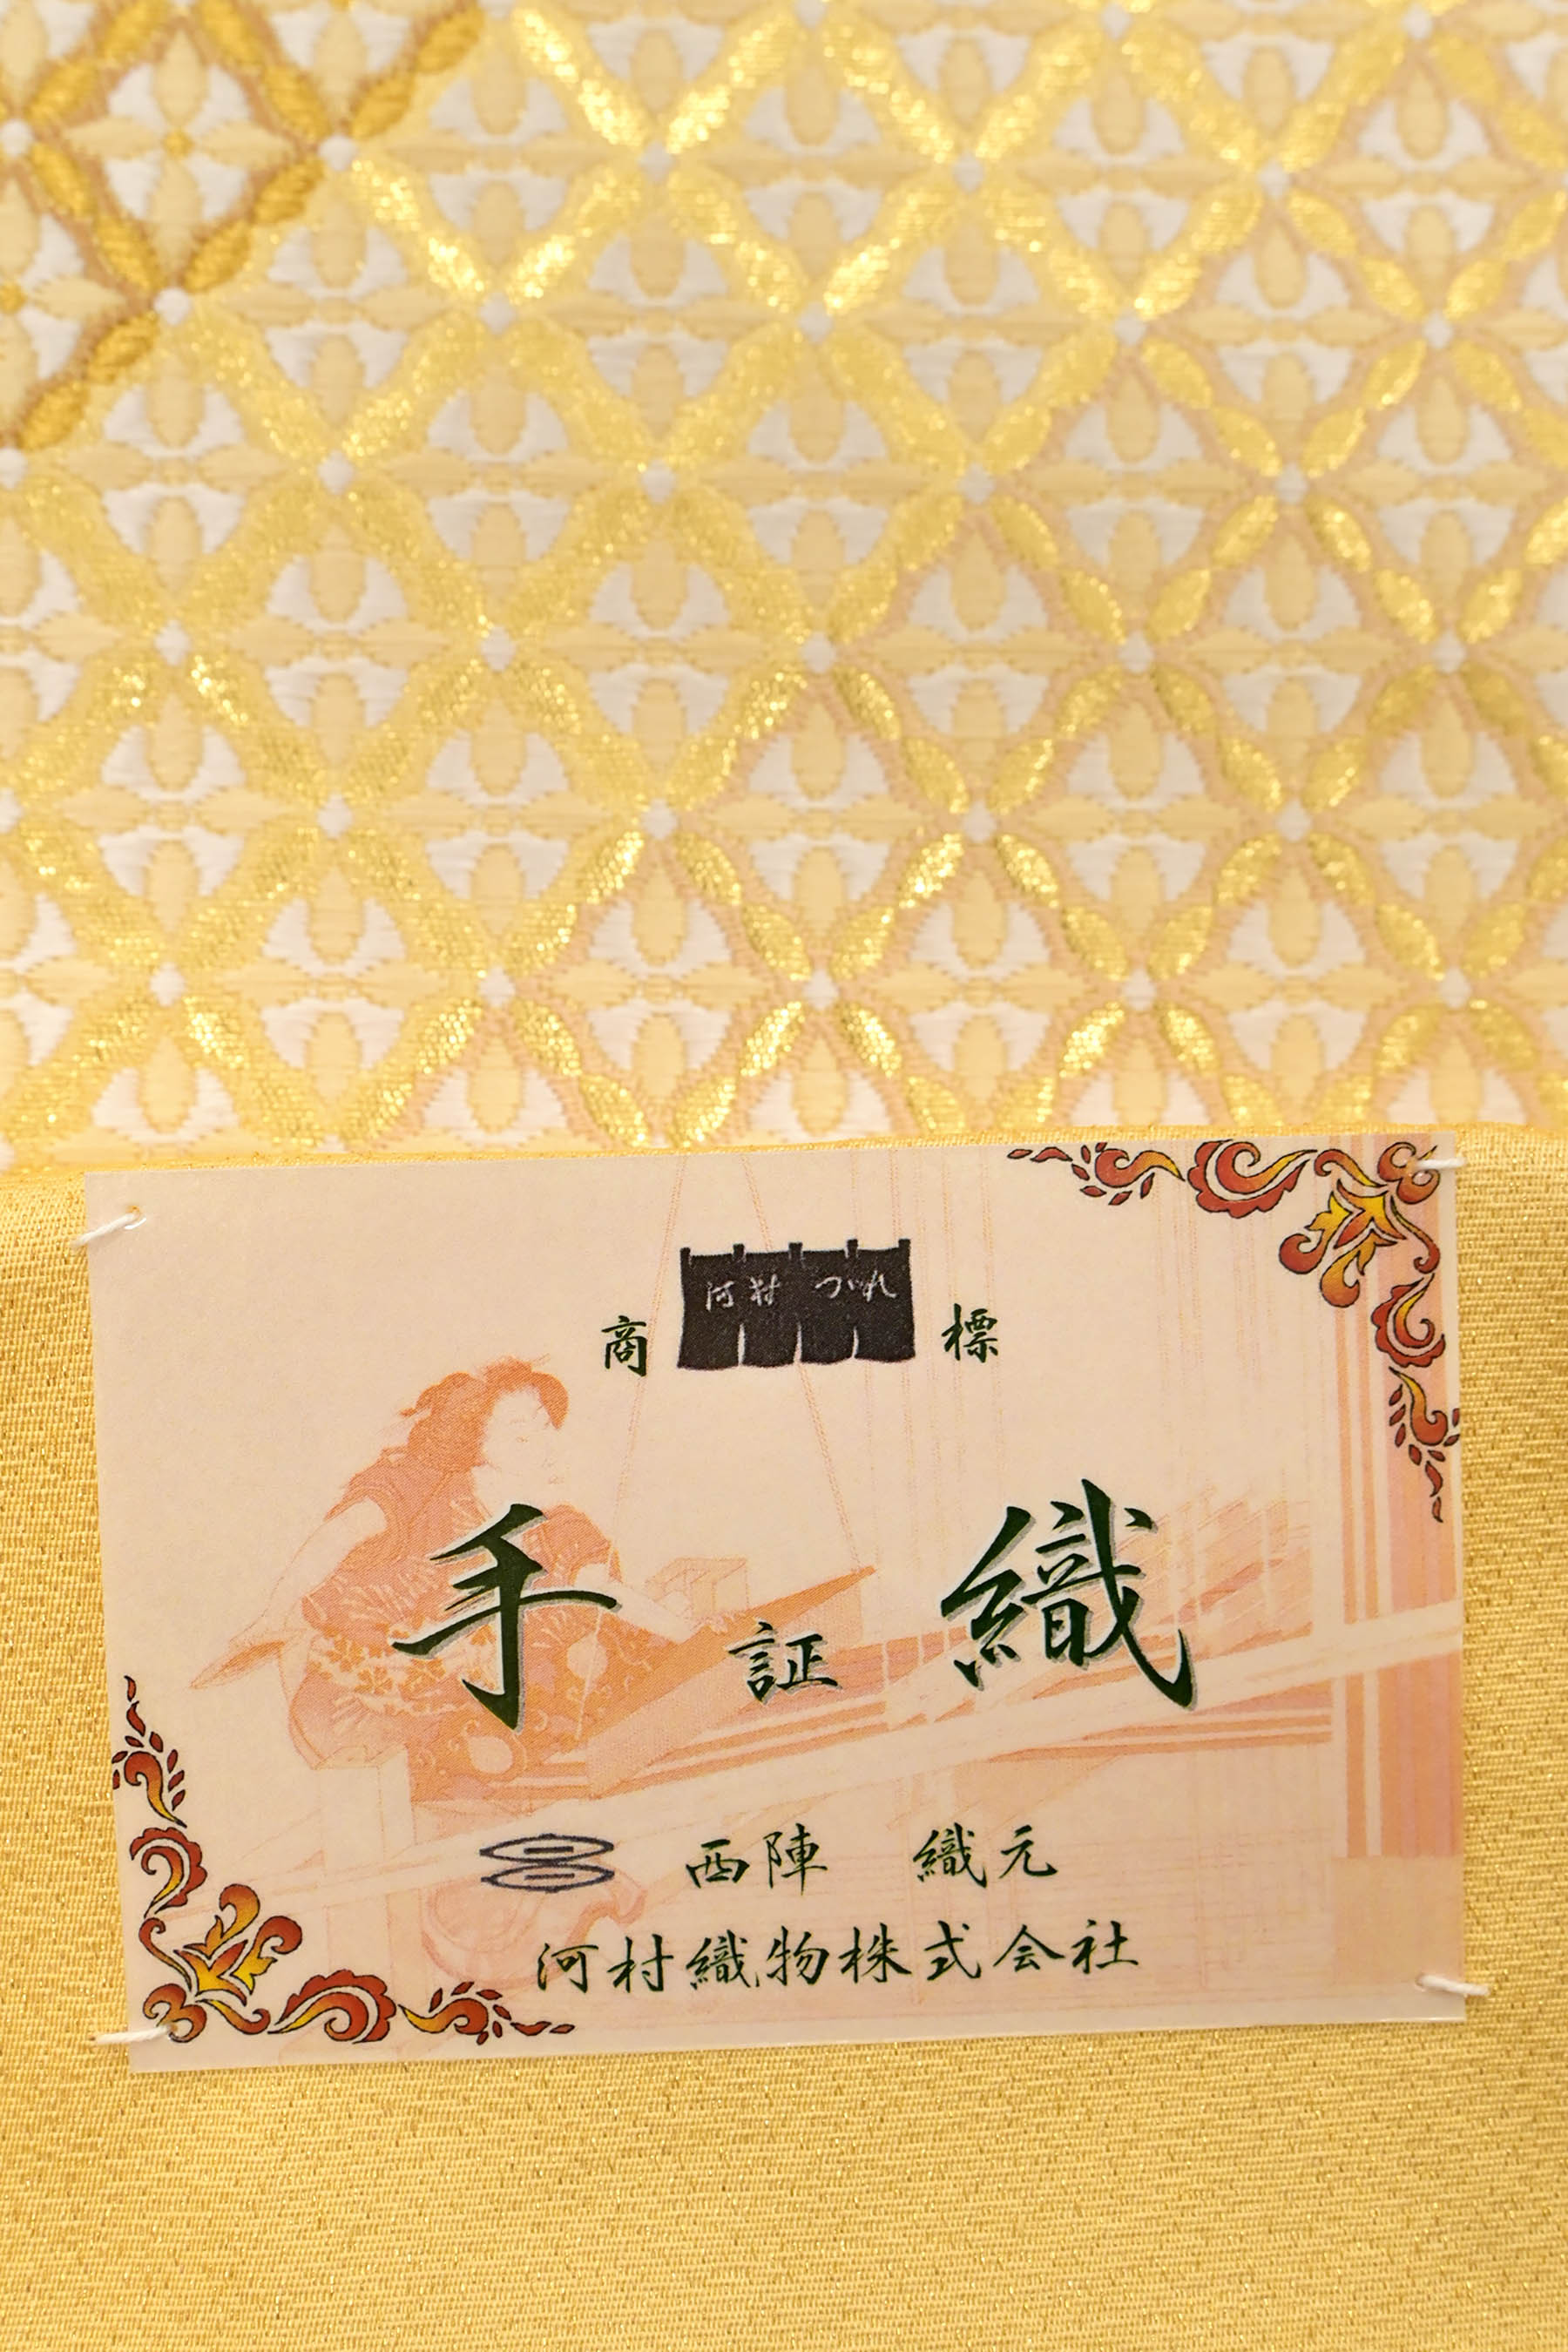 商 河村 つづれ 標
手 証 織
西陣 織元
河村織物株式会社